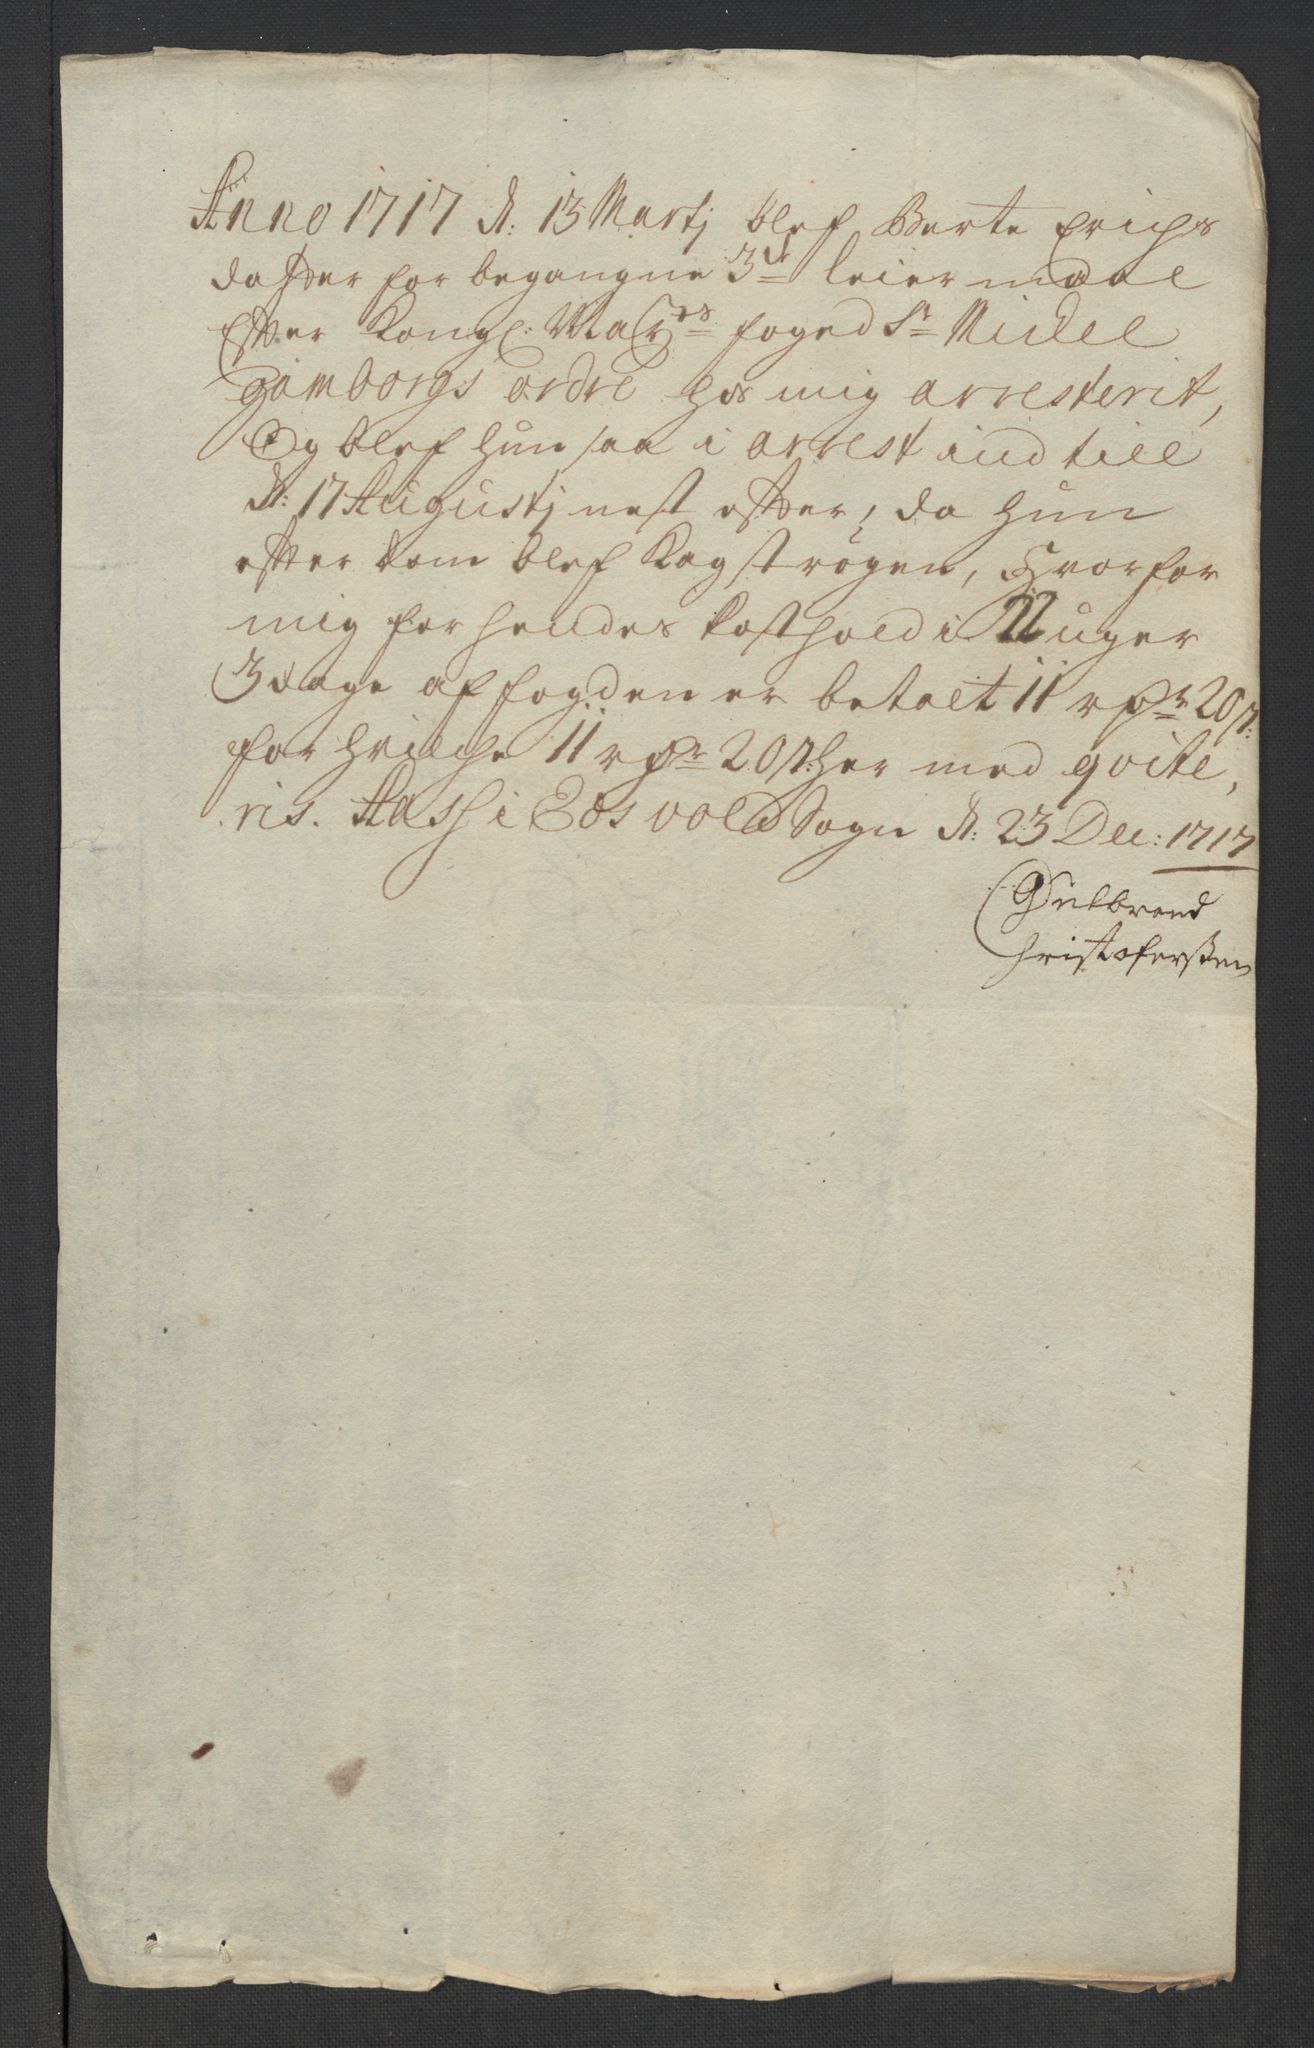 Anno 1717 d: 13 Martj blef Berte Erichs
datter for begangne 3de leiermaal
Efter Kongl: May:ts foged Sr Michel
Gamborgs ordre hos mig arresterit,
Og blef hun saa i arrest ind till
d: 17 Augustj nest efter, da hun
efter dom blef Kagströgen, Hvorfor
mig for hendes kosthold i 22 uger
3 dage af fogden er betalt 11 rdr 20 s:
for hvilche 11 rdr 20 s: her med qvite,
ris. Aas i Edsvold Sogn d: 23 Dec: 1717
Gulbrand
Christofersen